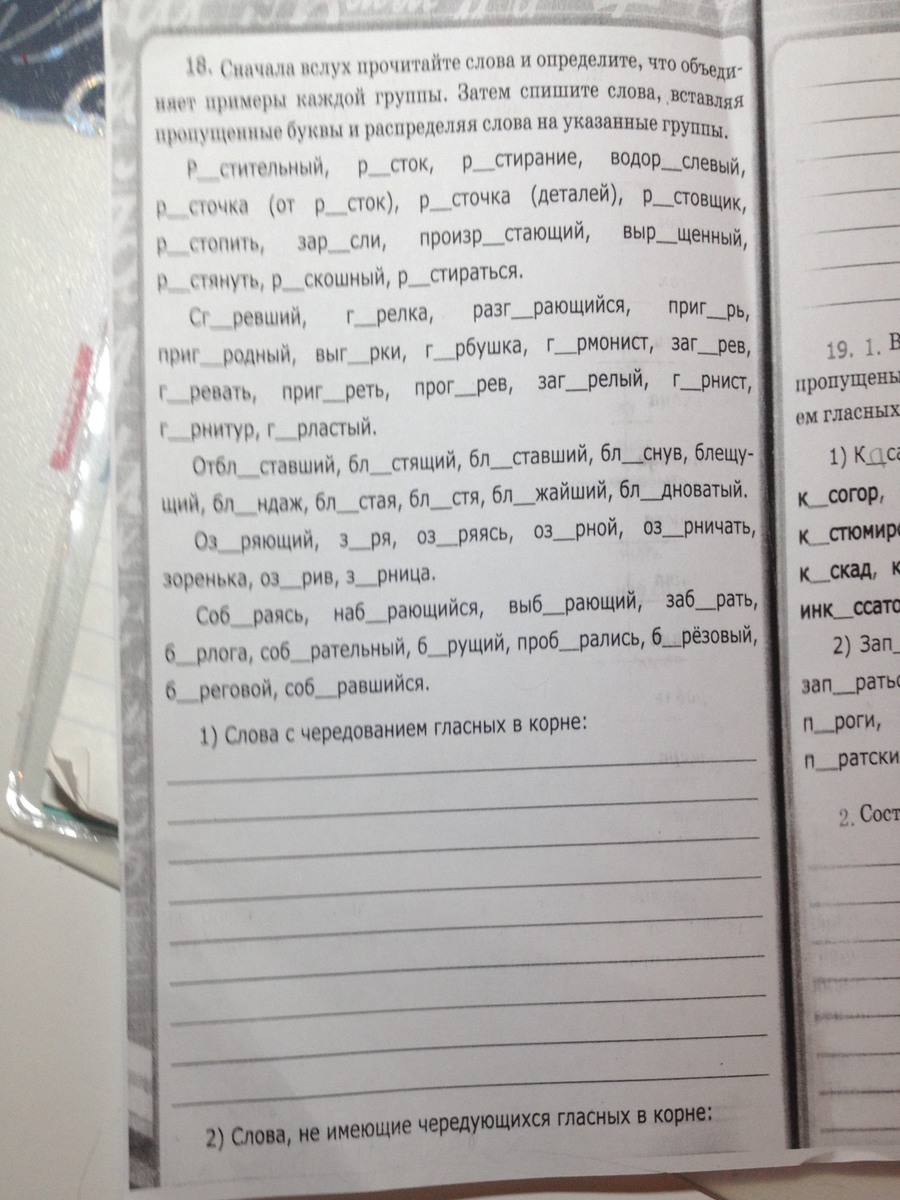 18. Сначала вслух прочитайте слова и определите, что объеди-
няет примеры каждой группы. Затем спишите слова, вставляя
пропущенные буквы и распределяя слова на указанные группы.
Р__стительный, р__сток, р__стирание, водор__слевый,
р__сточка (от р__сток), р__сточка (деталей), р__стовщик,
р__стопить, зар__сли, произр__стающий, выр__щенный,
р__стянуть, р__скошный, р__стираться.
Сг__ревший, г__релка, разг__рающийся, приг__рь,
приг__родный, выг__рки, г__рбушка, г__рмонист, заг__рев,
г__ревать, приг__реть, прог__рев, заг__релый, г__рнист,
г__рнитур, г__рластый.
Отбл__ставший, бл__стящий, бл__ставший, бл__снув, блещу-
щий, бл__ндаж, бл__стая, бл__стя, бл__жайший, бл__дноватый.
Оз__ряющий, з__ря, оз__ряясь, оз__рной, оз__рничать,
зоренька, оз__рив, з__рница.
Соб__раясь, наб__рающийся, выб__рающий, заб__рать,
б__рлога, соб__рательный, б__рущий, проб__рались, б__рёзовый,
б__реговой, соб__равшийся.
1) Слова с чередованием гласных в корне:
2) Слова, не имеющие чередующихся гласных в корне:
19. 1. В
пропущены
ем гласных
1) Каса
к__согор,
к__стюмиро
к__скад, к
инк__ссато
2) Зап__
зап__ратьс
п__роги,
п__ратски
2. Сост